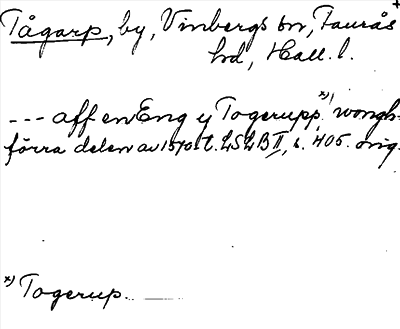 Tågarp, by, Vinbergs sn, Faurås +
hd, Hall. l.
--- aff en Eng y Togerupp x) wongh-
förra delen av 1570-t. LSLB II, s. 405. orig.
x) Togerup.